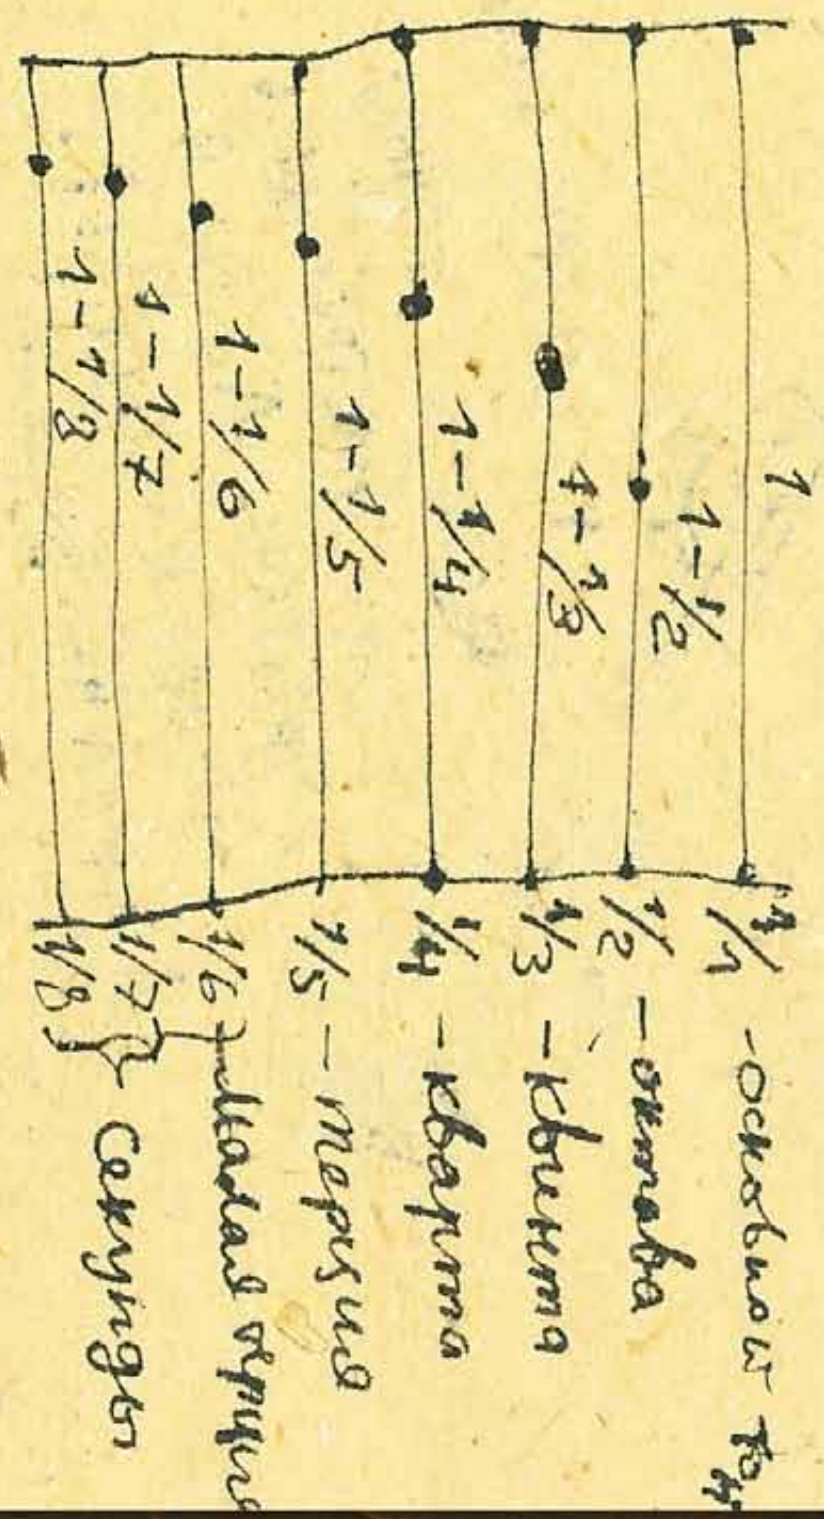 1 1/1 - основной тон
1-1/2 1/2 - октава
1-1/3 1/3 - квинта
1-1/4 1/4 - кварта
1-1/5 1/5 - терция
1-1/6 1/6 } малая терция
1-1/7 1/7 } секунды
1-1/8 1/8